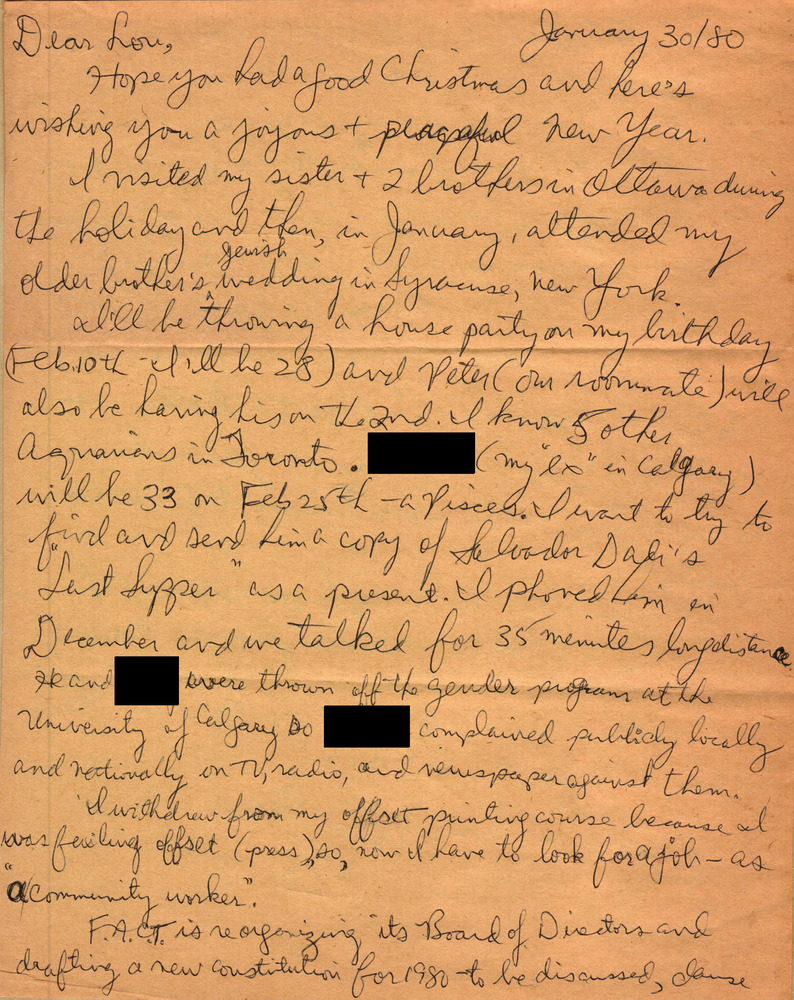 January 30/80
Dear Lou,
Hope you had a good Christmas and here's
wishing you a joyous + peaceful New Year.
I visited my sister + 2 brothers in Ottawa during
the holiday and then, in January, attended my
older brother's Jewish wedding in Syracuse, New York.
I'll be throwing a house party on my birthday
(Feb. 10th - I'll be 28) and Peter (our roommate) will
also be having his on the 2nd. I know 5 other
Aquarians in Toronto. (my "ex" in Calgary)
will be 33 on Feb 25th - a Pisces. I want to try to
find and send him a copy of Salvador Dali's
"Last Supper" as a present. I phoned him in
December and we talked for 35 minutes longdistance.
He and were thrown off the gender program at the
University of Calgary so complained publicly locally
and nationally on TV, radio, and newspaper against them.
I withdrew from my offset printing course because I
was failing offset (press), so, now I have to look for a job - as
"a community worker".
F.A.C.T. is reorganizing its Board of Directors and
drafting a new constitution for 1980 - to be discussed, clause